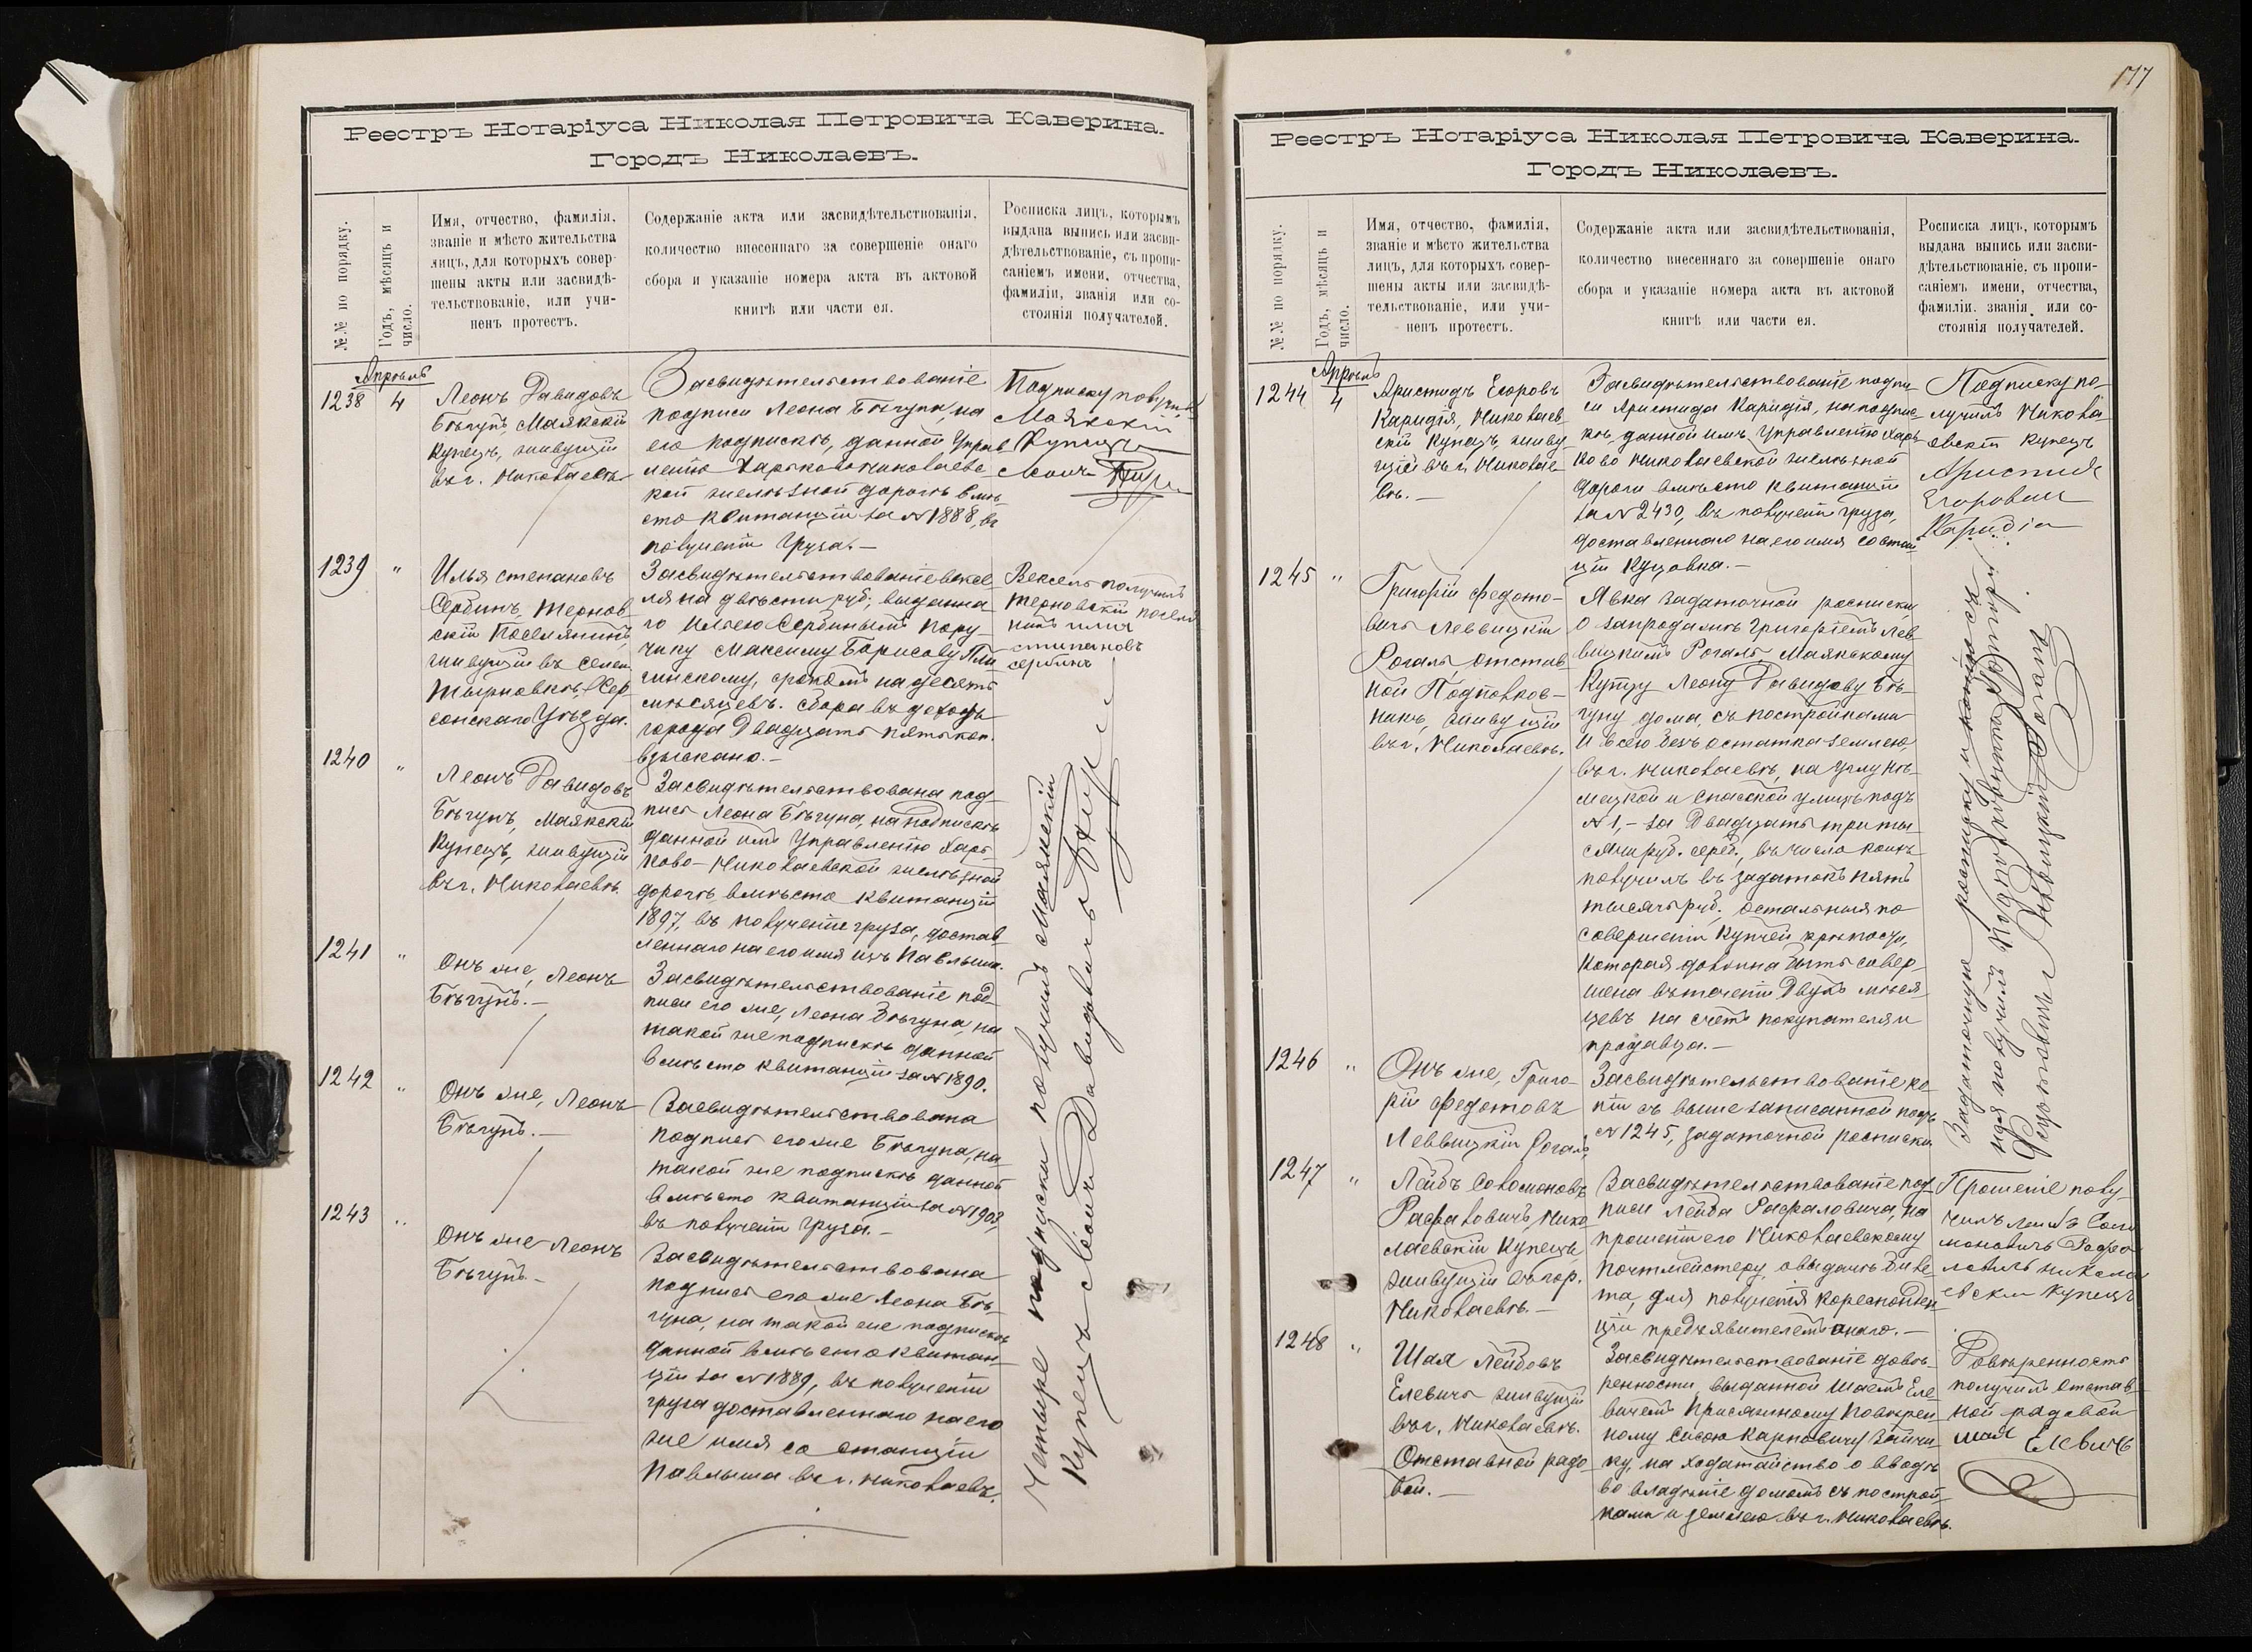 Реестръ Нотаріуса Николая Петровича Каверина.
Городъ Николаевъ.
№№ по порядку.
Годъ, мѣсяцъ и
число.
Имя, отчество, фамилія,
званіе и мѣсто жительства
лицъ, для которыхъ совер-
шены акты или засвидѣ-
тельствованіе, или учи-
ненъ протестъ.
Содержаніе акта или засвидѣтельствованія,
количество внесеннаго за совершеніе онаго
сбора и указаніе номера акта въ актовой
книгѣ или части ея.
Росписка лицъ, которымъ
выдана выпись или засви-
дѣтельствованіе, съ пропи-
саніемъ имени, отчества,
фамиліи, званія или со-
стоянія получателей.
Апрѣль
1238
4
Леонъ Давидовъ
Бѣгунъ, Маякскій
Купецъ, живущій
въ г. Николаевѣ
Засвидѣтельствованіе
подписи Леона Бѣгуна, на
его подпискѣ, данной Управ
ленію Харьково Николаевс
кой желѣзной дорогѣ вмѣ
сто квитанціи за № 1888, въ
полученіи груза.—
Подписку получилъ
Маякскій
Купецъ
Леонъ
1239
"
Илья Степановъ
Сербинъ, Тернов
скій Поселянинъ
живущій въ селеніи
Терновкѣ, Хер
сонскаго Уѣзда.
Засвидѣтельствованіе вексе
ля на двѣсти руб., выданна
го Ильею Сербинымъ Пору
чику Максиму Борисову
срокомъ на десять
мѣсяцевъ. Сбора въ доходъ
города Двадцать пять коп.
взыскано.—
Вексель получилъ
Терновскій посели
нинъ илиа
степановъ
сербинъ
1240
"
Леонъ Давидовъ
Бѣгунъ, Маякскій
Купецъ, живущій
въ г. Николаевѣ.
Засвидѣтельствована под
пись Леона Бѣгуна, на подпискѣ
данной имъ Управленію Харь
ково-Николаевской желѣзной
дорогѣ, вмѣсто квитанціи
1897, въ полученіе груза, достав
леннаго на его имя изъ Павлыша.
1241
"
Онъ же, Леонъ
Бѣгунъ.—
Засвидѣтельствованіе под
писи его же, Леона Бѣгуна, на
такой же подпискѣ данной
вмѣсто квитанціи за № 1890.
1242
"
Онъ же, Леонъ
Бѣгунъ.—
Засвидѣтельствована
подпись его же Бѣгуна, на
такой же подпискѣ данной
вмѣсто квитанціи за № 1903
въ полученіи груза.—
1243
"
Онъ же Леонъ
Бѣгунъ—
Засвидѣтельствована
подпись его же Леона Бѣ
гуна, на такой же подпискѣ
данной вмѣсто квитан
ціи за № 1889, въ полученіи
груза доставленнаго на его
же имя со станціи
Павлыша въ г. Николаевъ.
Четыре подписки получилъ Маякскій
Купецъ Леонъ Давидовичъ
177
Реестръ Нотаріуса Николая Петровича Каверина.
Городъ Николаевъ.
№№ по порядку.
Годъ, мѣсяцъ и
число.
Имя, отчество, фамилія,
званіе и мѣсто жительства
лицъ, для которыхъ совер-
шены акты или засвидѣ-
тельствованіе, или учи-
ненъ протестъ.
Содержаніе акта или засвидѣтельствованія,
количество внесеннаго за совершеніе онаго
сбора и указаніе номера акта въ актовой
книгѣ или части ея.
Росписка лицъ, которымъ
выдана выпись или засви-
дѣтельствованіе, съ пропи-
саніемъ имени, отчества,
фамиліи, званія или со-
стоянія получателей.
Апрѣль
1244
4
Аристидъ Егоровъ
Каридія, Николаев
скій Купецъ, живу
щій въ г. Николае
вѣ.—
Засвидѣтельствованіе подпи
си Аристида Каридія, на подпис
кѣ, данной имъ Управленію Харь
ково Николаевской желѣзной
дороги вмѣсто квитанціи
за № 2430, въ полученіи груза,
доставленнаго на его имя со стан
ціи Куцовка.—
Подписку по-
лучилъ Никола
евскій купецъ
Аристидъ
Егоровичъ
Каридіа
1245
"
Григорій Федото-
вичъ Леввицкій
Рогаль Отстав
ной Подполков-
никъ, живущій
въ г. Николаевѣ.
Явка задаточной росписки,
о запродажѣ Григоріемъ Лев
вицкимъ Рогаль, Маякскому
Купцу Леону Давидову Бѣ-
гуну дома, съ постройками
и всею безъ остатка землею
въ г. Николаевѣ, на углу Нѣ-
мецкой и Спасской улицъ подъ
№ 1,— за Двадцать три ты-
сячи руб. сереб., въ число коихъ
получилъ въ задатокъ пять
тысячъ руб., остальныя по
совершеніи Купчей крѣпости,
которая должна быть совер-
шена въ теченіи Двухъ мѣся-
цевъ на счетъ покупателя и
продавца.—
1246
"
Онъ же, Григо-
рій Федотовъ
Леввицкій Рогаль
Засвидѣтельствованіе ко-
піи съ выше записанной подъ
№ 1245, задаточной росписки
Задаточную росписку и копію съ
нея получилъ Подполковникъ Григорій
Федотовичъ Левицкій Рогаль
1247
"
Лейбъ Соломоновъ
Рафаловичъ Нико
лаевскій Купецъ
живущій въ гор.
Николаевѣ.—
Засвидѣтельствованіе под
писи Лейба Рафаловича, на
прошеніи его Николаевскому
почтмейстеру, о выдачѣ Биле
та, для полученія кореспонден
ціи предъявителемъ онаго.—
Прошеніе полу
чилъ Лейбъ Соло
моновичъ Рафа
ловичъ никола
евскій купецъ
1248
"
Шая Лейбовъ
Елевичъ живущій
въ г. Николаевѣ.
Отставной рядо-
вой.—
Засвидѣтельствованіе довѣ-
ренности, выданной Шаемъ Еле
вичемъ Присяжному Повѣрен
ному Сисою Карповичу
на ходатайство о вводѣ
во владѣніе домомъ съ построй
ками и землею въ г. Николаевѣ.
Довѣренность
получилъ Отстав
ной рядовой
шая Елевичъ